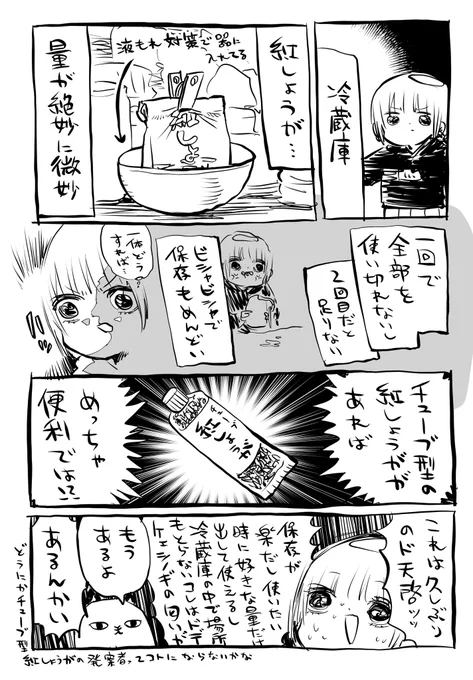 冷蔵庫
紅しょうが…
液もれ対策で器に
入れてる
紅しょうが
量が絶妙に微妙
一回で
全部を
使い切れないし
2回目だと
足りない
ビシャビシャで
保存もめんどい
一体どう
すれば…
チューブ型の
紅しょうがが
あれば
紅しょうが
めっちゃ
便利では!?
これは久しぶり
のド天啓ッッ
保存が
楽だし使いたい
時に好きな量だけ
出して使えるし
冷蔵庫の中で場所
もとらないコレはドデ
もう
あるよ
あるんかい
どうにかチューブ型
紅しょうがの発案者ってコトにならないかな